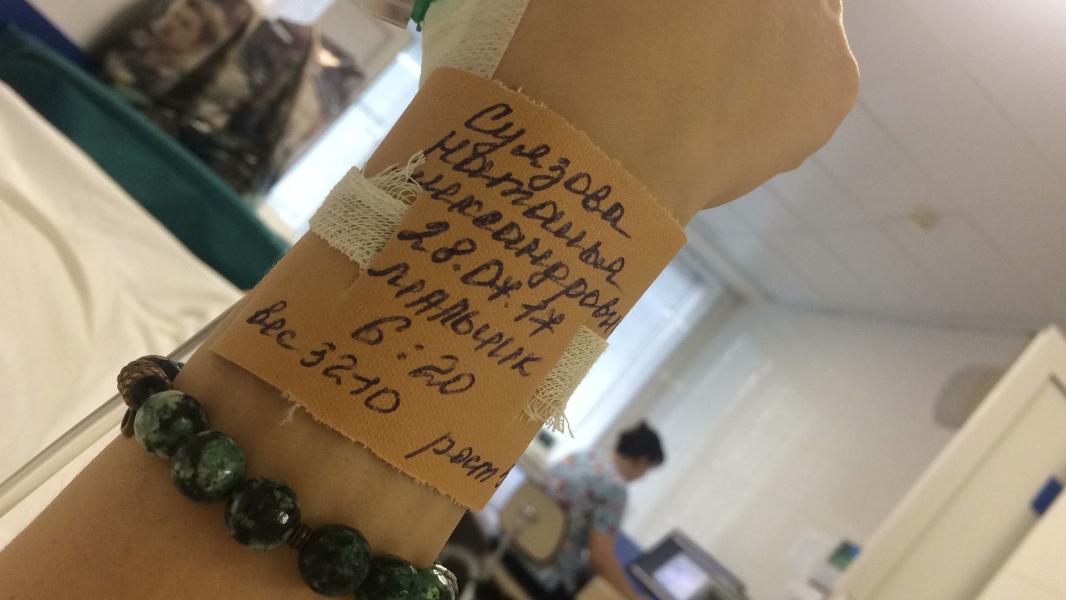 Суязова
Наталья
лександровн
28.04.17
мальчик
6:20
вес 3210
рост